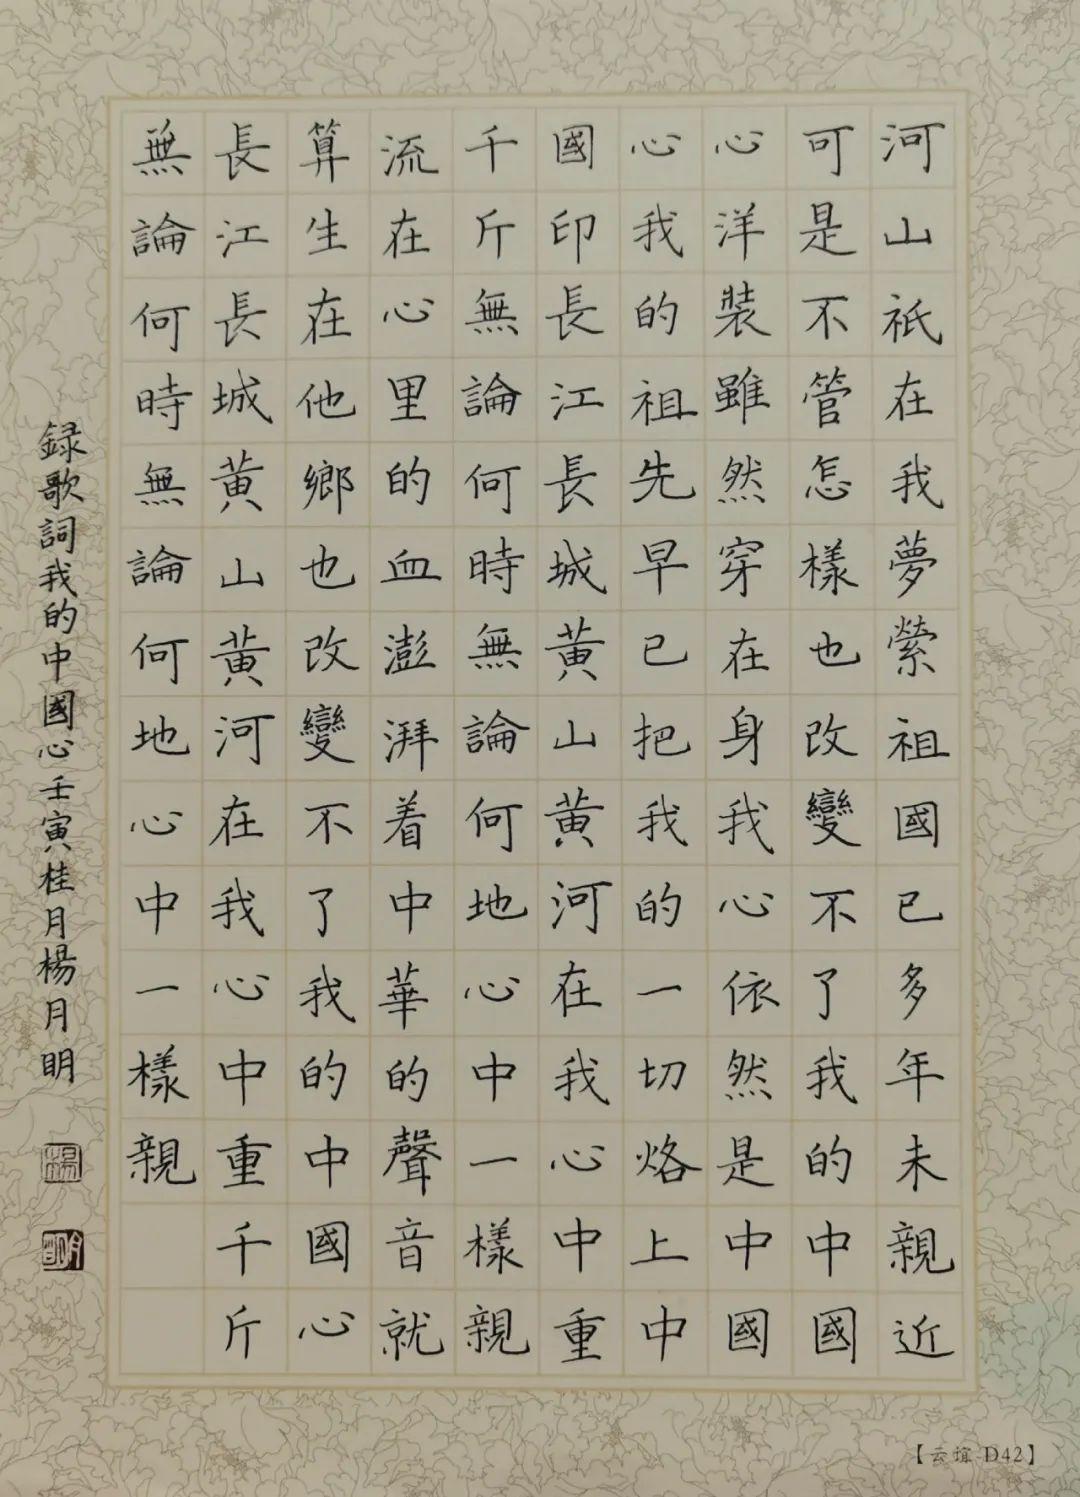 河山祇在我夢縈祖國已多年未親近
可是不管怎樣也改變不了我的中國
心洋裝雖然穿在身我心依然是中國
心我的祖先早已把我的一切烙上中
國印長江長城黃山黃河在我心中重
千斤無論何時無論何地心中一樣親
流在心里的血澎湃着中華的聲音就
算生在他鄉也改變不了我的中國心
長江長城黃山黃河在我心中重千斤
無論何時無論何地心中一樣親
録歌詞我的中國心壬寅桂月楊月明
楊
月明
【云谊 D42】